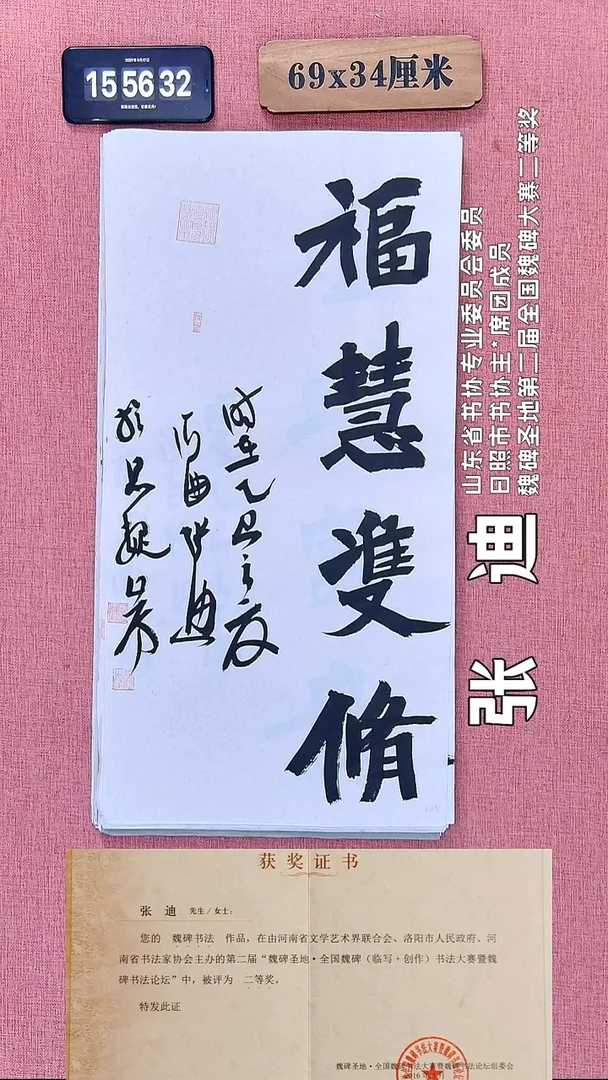 15 56 32
69x34厘米
福慧雙脩
时在乙巳之夏
张迪
山东省书协专业委员会委员
日照市书协主*席团成员
魏碑圣地第二届全国魏碑大赛二等奖
张 迪
获奖证书
张 迪 先生/女士：
您的 魏碑书法 作品，在由河南省文学艺术界联合会、洛阳市人民政府、河
南省书法家协会主办的第二届“魏碑圣地·全国魏碑（临写+创作）书法大赛暨魏
碑书法论坛”中，被评为 二等奖。
特发此证
魏碑圣地·全国魏碑书法大赛暨魏碑书法论坛组委会